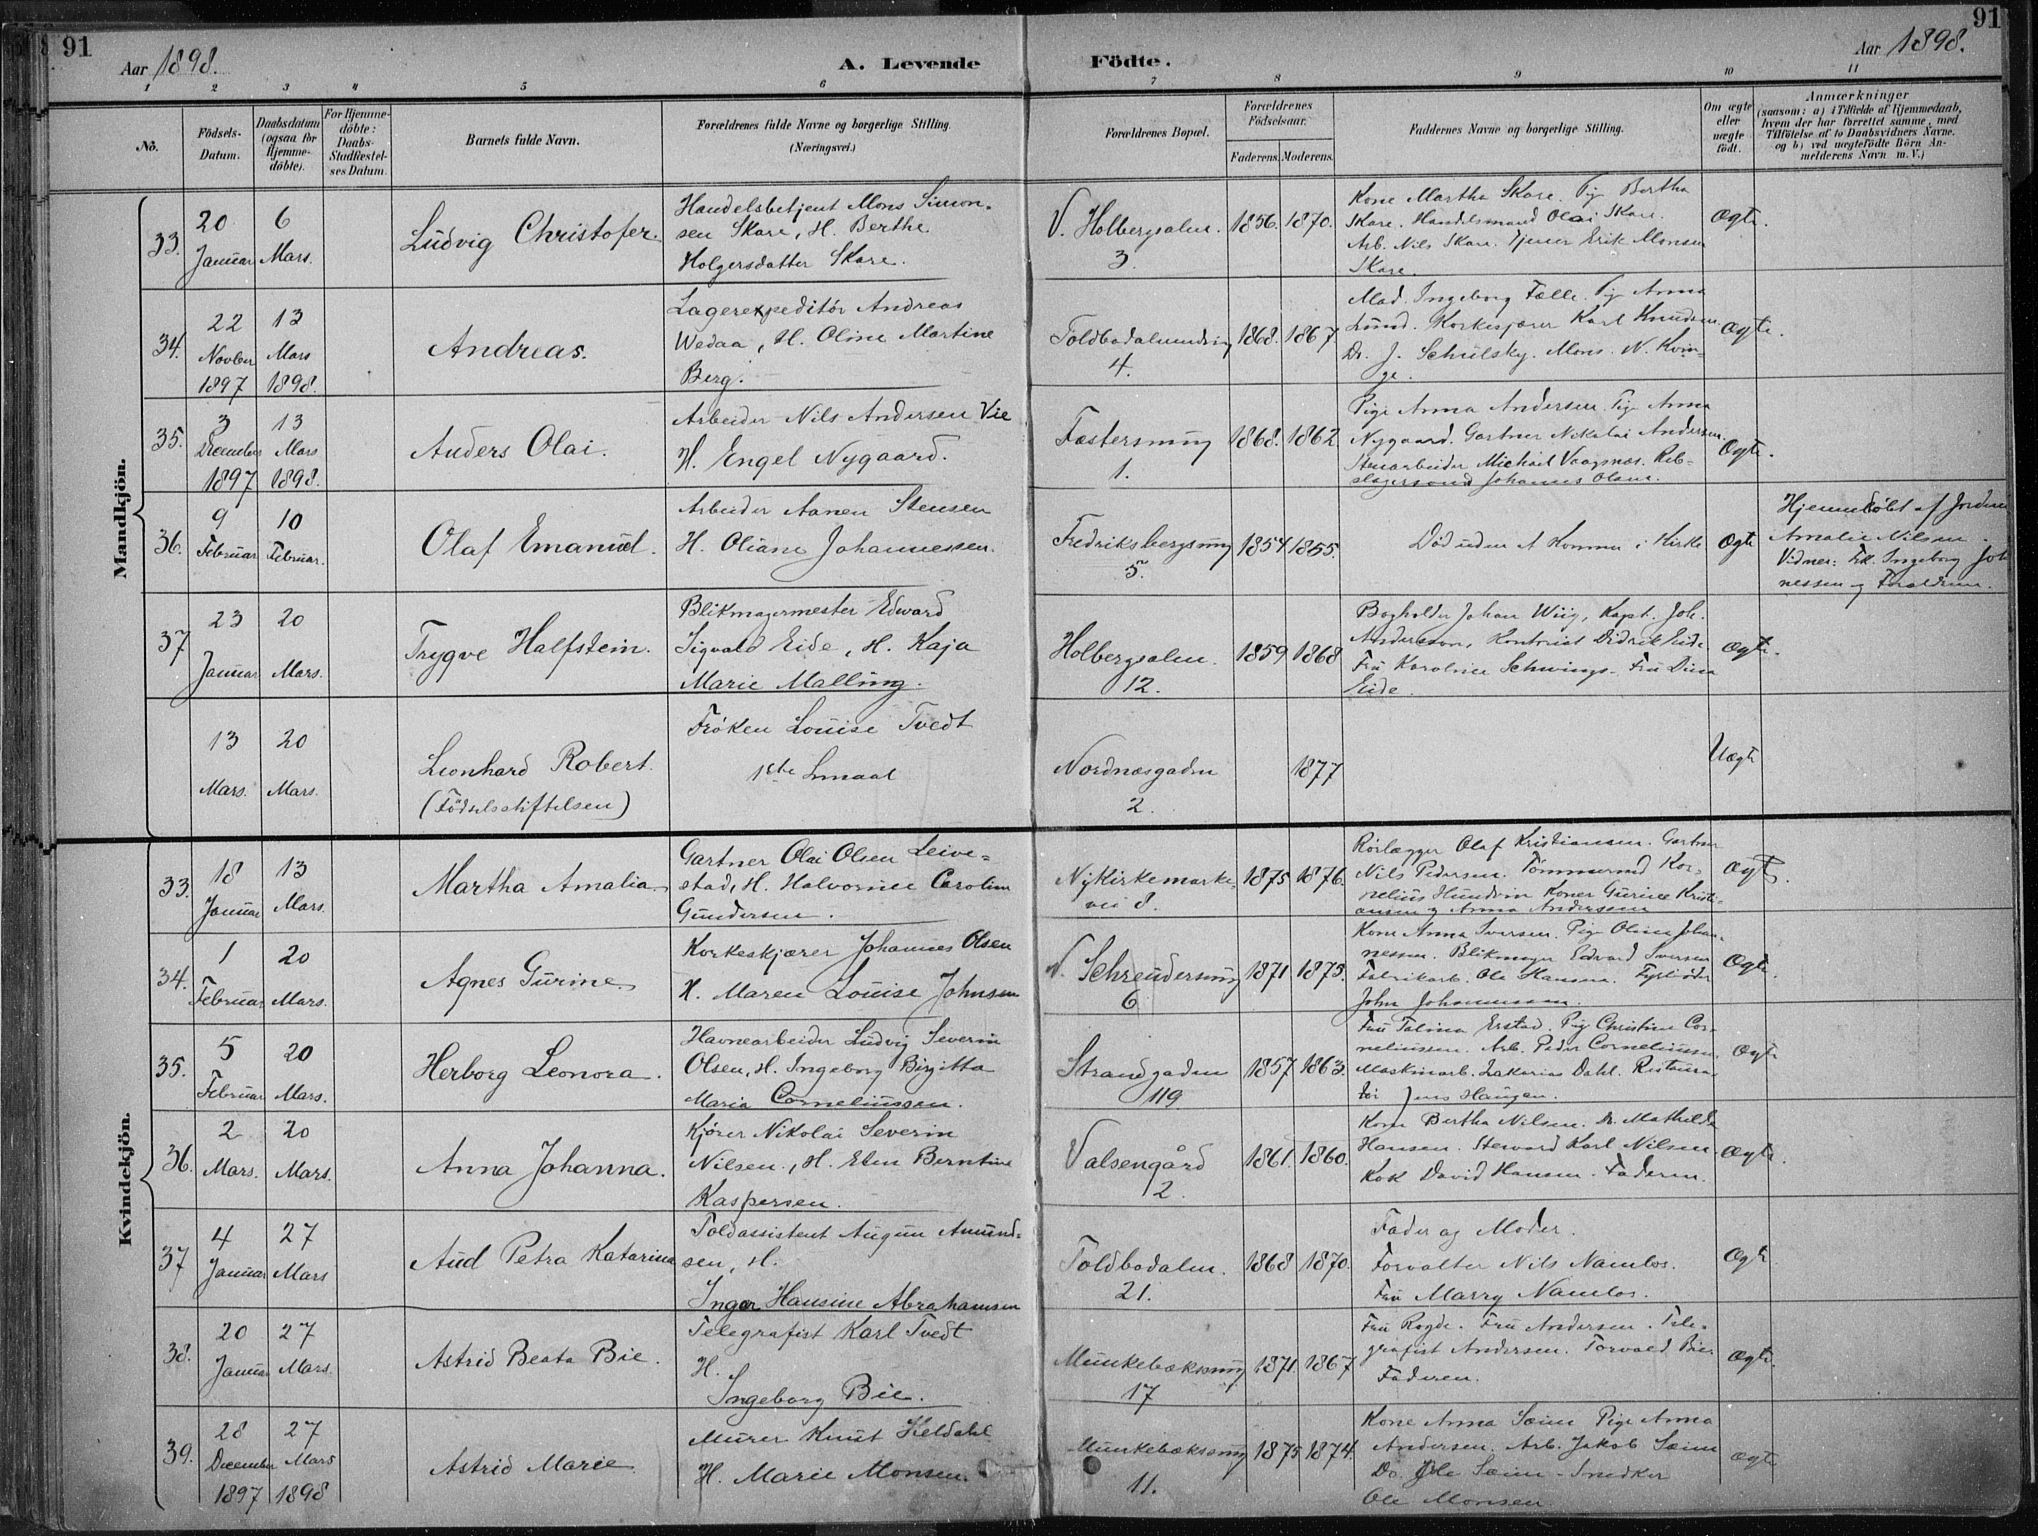 91
Aar 1898.
A. Levende Födte.
Aar 1898.
91
1 2 3 4 5 6 7 8 9 10 11
No.
Födsels-
Datum.
Daabsdatum
(ogsaa for
Hjemme-
döbte).
For Hjemme-
döbte:
Daabs-
Stadfæstel-
ses Datum.
Barnets fulde Navn.
Forældrenes fulde Navne og borgerlige Stilling.
(Næringsvei.)
Forældrenes Bopæl.
Forældrenes
Födselsaar.
Faderens. Moderens.
Faddernes Navne og borgerlige Stilling.
Om ægte
eller
uægte
födt.
Anmærkninger
(saasom: a) i Tilfælde af Hjemmedaab,
hvem der har forrettet samme, med
Tilföielse af to Daabsvidners Navne.
og b) ved uægtefödte Börn An-
melderens Navn m. V.)
Mandkjön.
33. 20 Januar 6 Mars.
Ludvig Christofer.
Handelsbetjent Mons Simon-
sen Skare, H. Berthe
Holgersdatter Skare.
V. Holbergsalm. 3.
1856. 1870.
Kone Martha Skare. Pig Bertha
Skare. Handelsmand Olai Skare.
Arb. Nils Skare. Tjener Erik Monsen
Skare.
Ægte.
34. 22 Novber 1897 13 Mars 1898.
Andreas.
Lagerexpeditör Andreas
Wedaa, H. Oline Martine
Berg.
4.
1868. 1867
Mad. Ingeborg Fælle. Pig Anna
Lund. Korkeskjærer Karl Knudsen
Dr. J. Schülsky. Mons. N. Kvin-
ge.
Ægte.
35. 3 December 1897 13 Mars 1898.
Anders Olai.
Arbeider Nils Andersen Vie
H. Engel Nygaard.
Fæstersmug 1.
1868. 1862
Pige Anna Andersen. Pig Anna
Nygaard. Gartner Nikolai Andersen
Stenarbeider Michael Vaagsnæs. Reb-
slagersvend Johannes Olsen.
Ægte.
36. 9 Februar 10 Februar.
Olaf Emanuel.
Arbeider Aanen Stensen
H. Oliane Johannessen.
Fredriksbergsmug 5.
1854 1855.
Död uden at komme i Kirke
Ægte
Hjemmedöbt af Jordm.
Amalie Nilsen.
Vidner: Frk. Ingeborg Joh
nessen og Forældrene.
37 23 Januar 20 Mars.
Trygve Halfstein.
Blikmagermester Edward
Sigvald Eide, H. Kaja
Marie Malling.
Holbergsalm. 12.
1859 1868
Bogholder Johan Wiig, Kapt. Joh.
Anderson, Kontorist Didrik Eide.
Fru Karoline Schwings. Fru Dina
Eide.
Ægte.
13 Mars. 20 Mars.
Leonhard Robert.
(Födselsstiftelsen)
Fröken Louise Tvedt
1ste Lmaal
Nordnæsgaden 2.
1877
Uægte
Kvindekjön.
33. 18 Januar 13 Mars.
Martha Amalia
Gartner Olai Olsen Leive-
stad, H. Halvorine Caroline
Gundersen.
Nykirkemarke-
vei 8.
1875 1876.
Rörlægger Olaf Kristiansen. Gartner
Nils Pedersen. Tömmermd Kor-
nelius Hundvin Koner Gurine Kristi-
ansen og Anna Anderssen
Ægte.
34. 1 Februar 20 Mars.
Agnes Gurine.
Korkeskjærer Johannes Olsen
H. Maren Louise Johnsen
V. Schreudersmug 6
1871 1875.
Kone Anna Iversen. Pige Oline Johan-
nessen. Blikmager Edvard Iversen
Fabrikarb. Ole Hansen.
John Johannessen.
Ægte.
35. 5 Februar 20 Mars.
Herborg Leonora.
Havnearbeider Ludvig Severin
Olsen, H. Ingeborg Birgitta
Maria Corneliussen.
Strandgaden 119
1857 1863.
Fru Talina Erstad. Pig Christine Cor-
neliussen. Arb. Peder Corneliussen.
Maskinarb. Zakarias Dahl. Restaura-
tör Jens Haugen.
Ægte
36. 2 Mars. 20 Mars.
Anna Johanna.
Kjörer Nikolai Severin
Nilsen, H. Elen Berntine
Kaspersen.
Valsengård 2.
1861. 1860.
Kone Bertha Nilsen. Do. Mathilda
Hansen. Steward Karl Nilsen
Kok David Hansen. Faderen.
Ægte.
37 4 Januar 27 Mars
Aud Petra Katarina
Toldassistent Augun Amund-
sen, H.
Inger Hansine Abrahamsen
Toldbodalm. 21.
1868 1870.
Fader og Moder.
Forvalter Nils Namlos.
Fru Marry Namlos.
Ægte
38. 20 Januar 27 Mars.
Astrid Beata Bie.
Telegrafist Karl Tvedt
H.
Ingeborg Bie.
Munkebæksmug 17
1871. 1867
Fru Rogde. Fru Andersen. Tele-
grafist Andersen. Torvald Bie.
Faderen.
Ægte.
39. 28 December 1897 27 Mars 1898
Astrid Marie
Murer Knut Heldahl
H. Marie Monsen.
Munkebæksmug 11.
1875 1874.
Kone Anna Sæim Pige Anna
Andersen. Arb. Jakob Sæim
Do. Ole Sæim - Snedker
Ole Monsen
Ægte